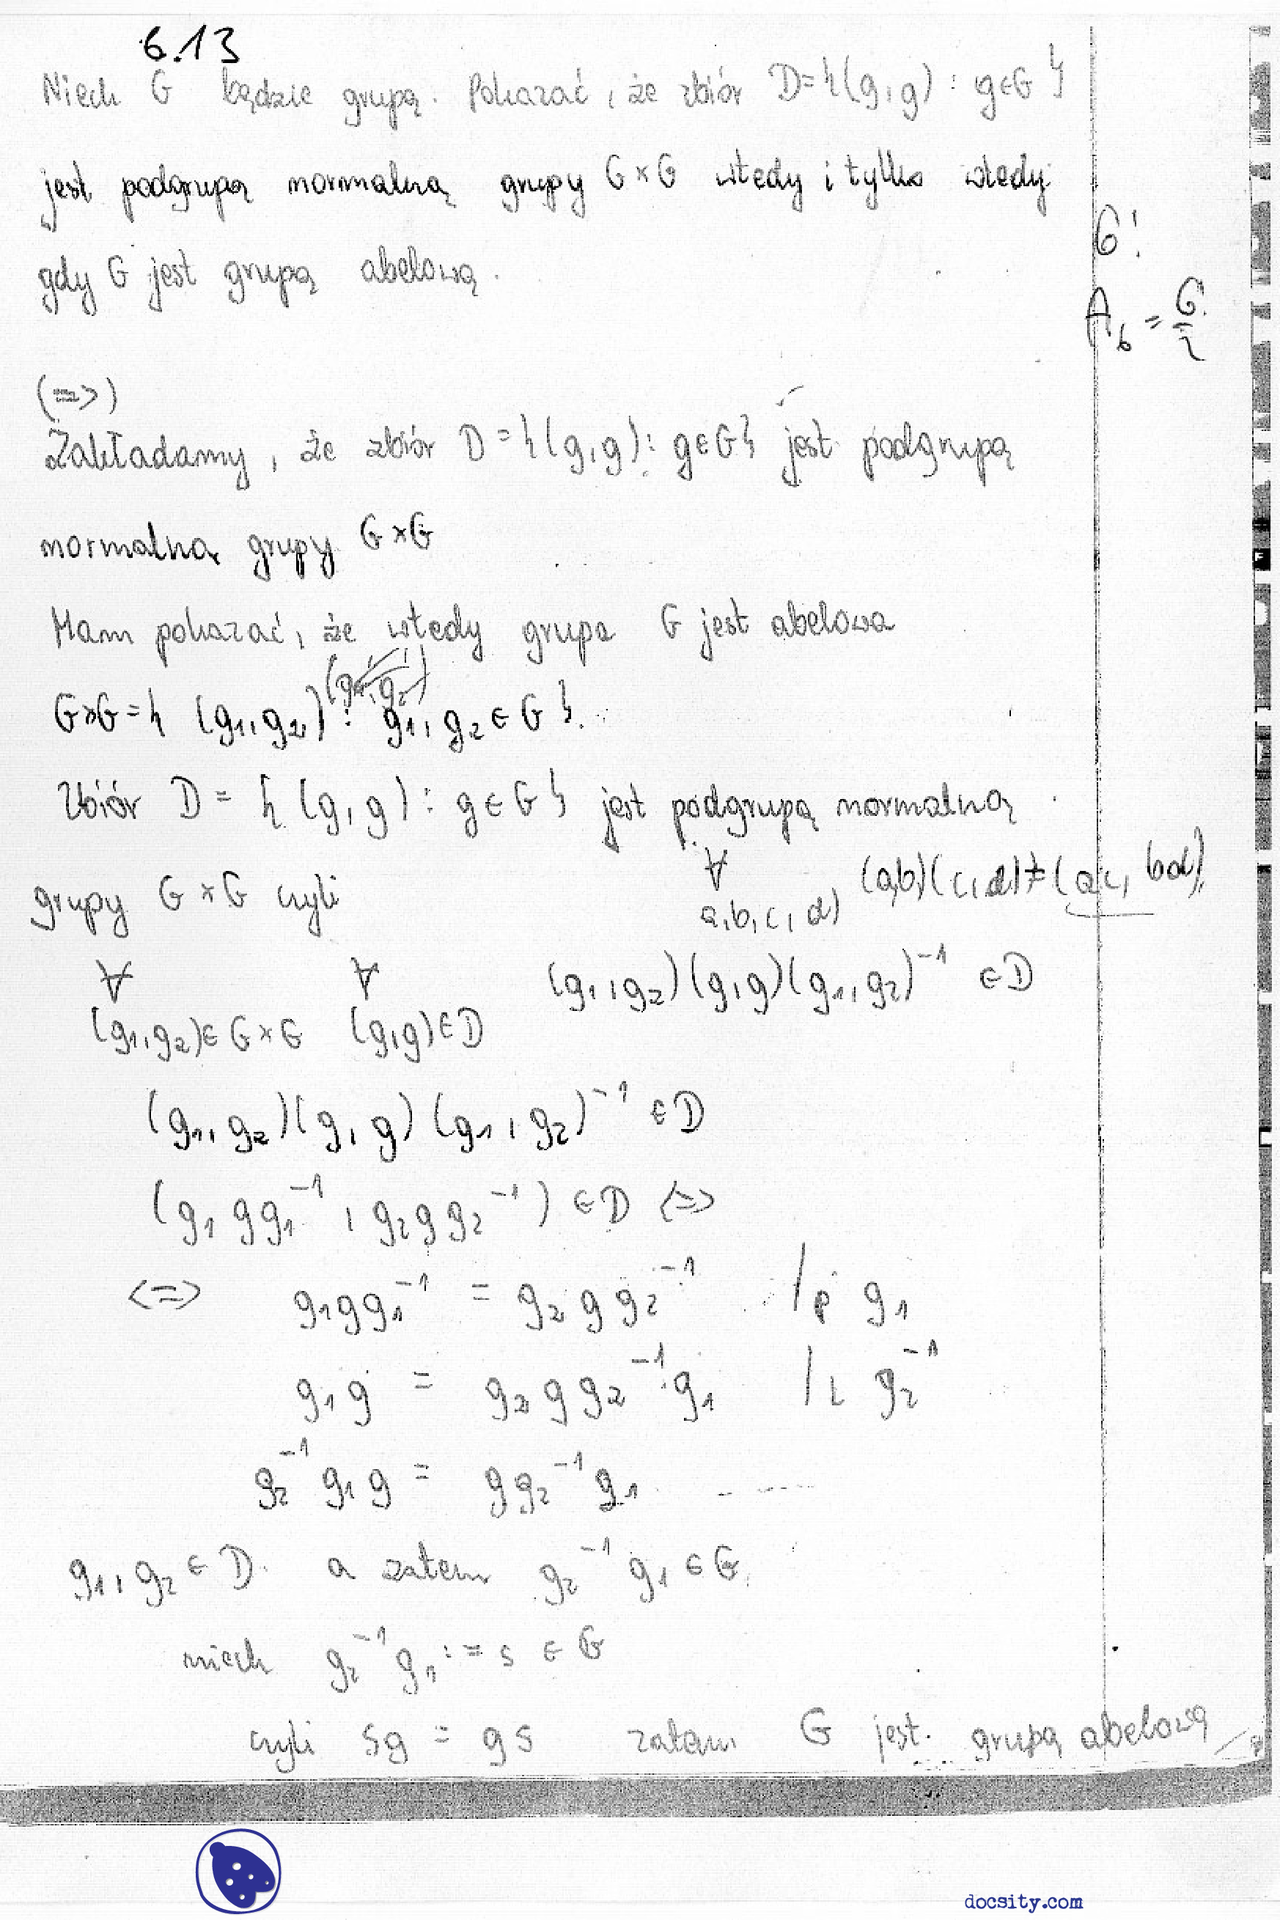 6.13
Niech G będzie grupą. Pokazać, że zbiór D={(g,g): g∈G}
jest podgrupą normalną grupy G×G wtedy i tylko wtedy
gdy G jest grupą abelową.
6!
A₆ = 6!/2
(=>)
Zakładamy, że zbiór D={(g,g): g∈G} jest podgrupą
normalną grupy G×G
Mam pokazać, że wtedy grupa G jest abelowa
G×G={(g₁,g₂): g₁,g₂∈G}.
Zbiór D = {(g,g): g∈G} jest podgrupą normalną
grupy G×G czyli
∀ a,b,c,d) (a,b)(c,d)=(ac, bd)
∀ ∀ (g₁,g₂)(g,g)(g₁,g₂)⁻¹ ∈D
(g₁,g₂)∈G×G (g,g)∈D
(g₁,g₂)(g,g)(g₁,g₂)⁻¹ ∈D
(g₁gg₁⁻¹, g₂gg₂⁻¹) ∈D <=>
<=> g₁gg₁⁻¹ = g₂gg₂⁻¹ /p g₁
g₁g = g₂gg₂⁻¹g₁ /L g₂⁻¹
g₂⁻¹g₁g = gg₂⁻¹g₁
g₁,g₂∈D. a zatem g₂⁻¹g₁∈G.
niech g₂⁻¹g₁:=s∈G
czyli sg = gs zatem G jest grupą abelową
docsity.com